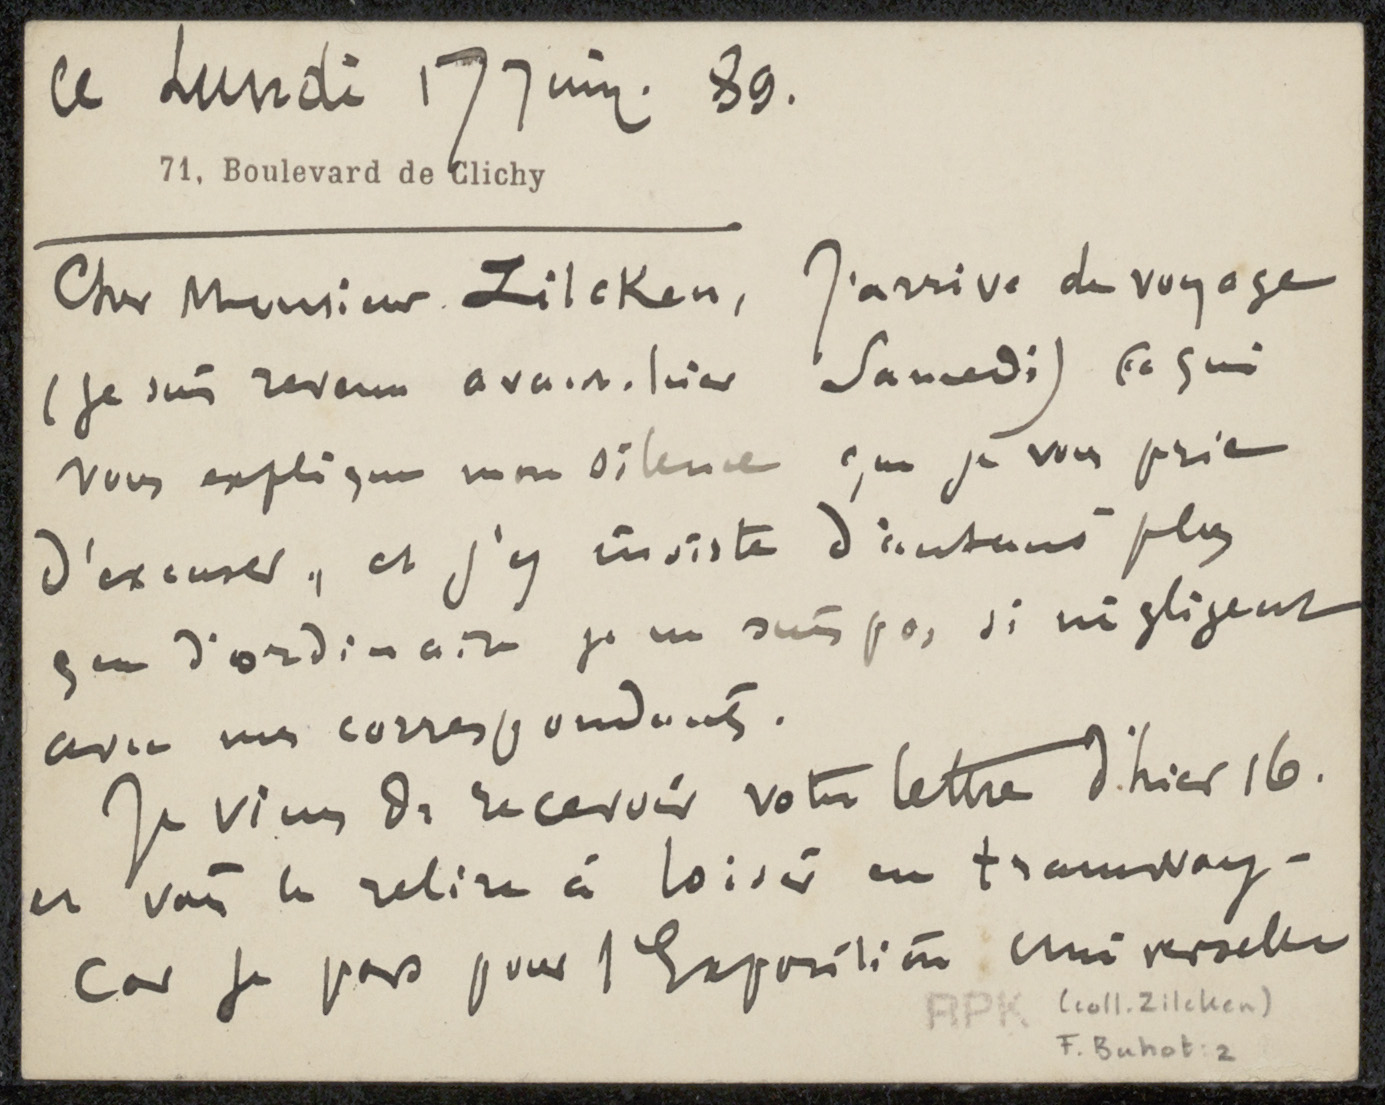 ce Lundi 17 juin. 89.
71, Boulevard de Clichy
Cher Monsieur Zilcken, J'arrive de voyage
(je suis revenu avant-hier Samedi) ce qui
vous explique mon silence que je vous prie
d'excuser, et j'y insiste d'autant plus
que d'ordinaire je ne suis pas si négligent
avec mes correspondants.
Je viens de recevoir votre lettre d'hier 16.
et vais la relire à loisir en tramway -
car je pars pour l'Exposition universelle
RPK (coll. Zilcken)
F. Buhot: 2